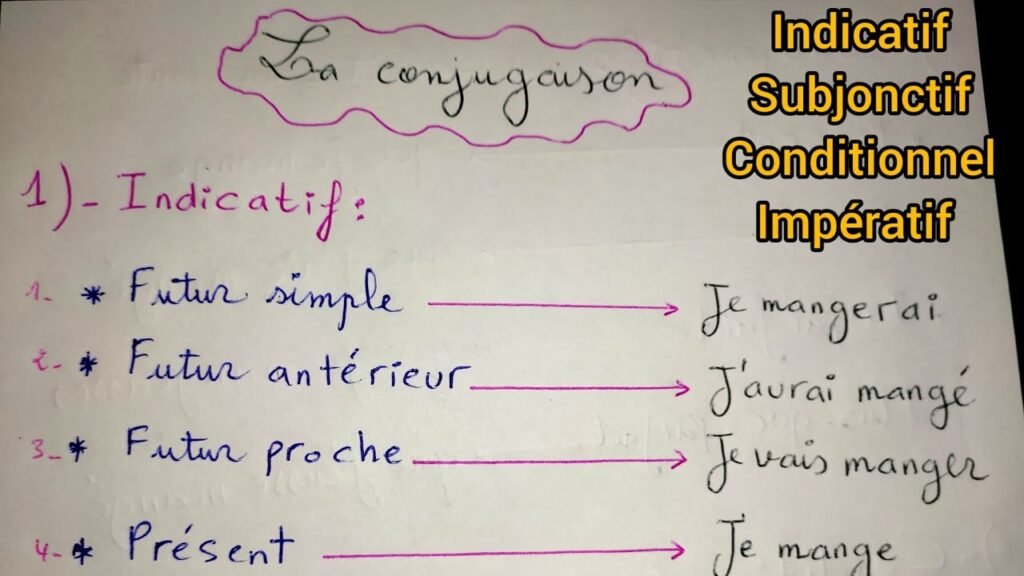 La conjugaison
Indicatif
Subjonctif
Conditionnel
Impératif
1)- Indicatif:
1- * Futur simple → Je mangerai
2- * Futur antérieur → J'aurai mangé
3- * Futur proche → Je vais manger
4- * Présent → Je mange